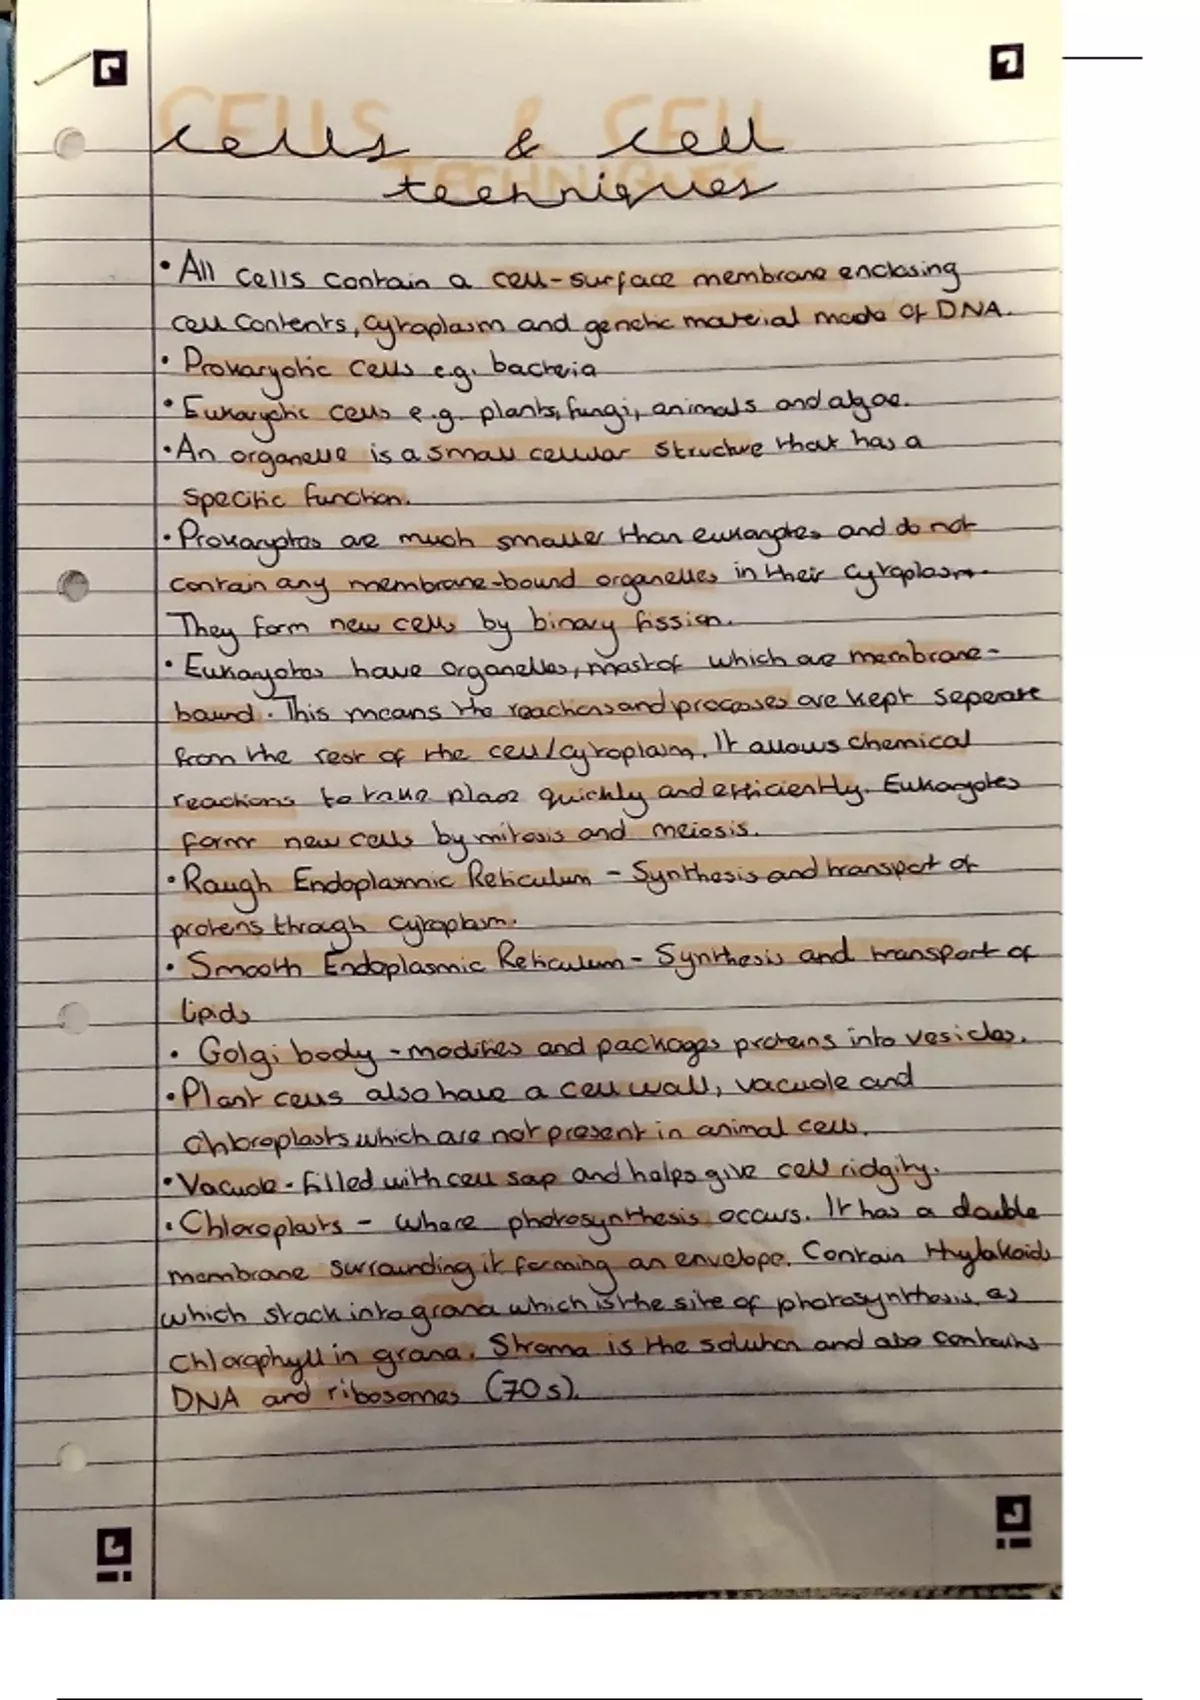 CELLS & CELL
TECHNIQUES
cells & cell
techniques
• All cells contain a cell-surface membrane enclosing
cell contents, cytoplasm and genetic material made of DNA.
• Prokaryotic cells e.g. bacteria
• Eukaryotic cells e.g. plants, fungi, animals and algae.
• An organelle is a small cellular structure that has a
specific function.
• Prokaryotes are much smaller than eukaryotes and do not
contain any membrane-bound organelles in their cytoplasm.
They form new cells by binary fission.
• Eukaryotes have organelles, most of which are membrane-
bound. This means the reactions and processes are kept seperate
from the rest of the cell/cytoplasm. It allows chemical
reactions to take place quickly and efficiently. Eukaryotes
form new cells by mitosis and meiosis.
• Rough Endoplasmic Reticulum - Synthesis and transport of
proteins through cytoplasm.
• Smooth Endoplasmic Reticulum - Synthesis and transport of
lipids
• Golgi body - modifies and packages proteins into vesicles.
• Plant cells also have a cell wall, vacuole and
chloroplasts which are not present in animal cells.
• Vacuole - filled with cell sap and helps give cell ridgity.
• Chloroplasts - where photosynthesis occurs. It has a double
membrane surrounding it forming an envelope. Contain thylakoids
which stack into grana which is the site of photosynthesis as
chlorophyll in grana. Stroma is the solution and also contains
DNA and ribosomes (70s).